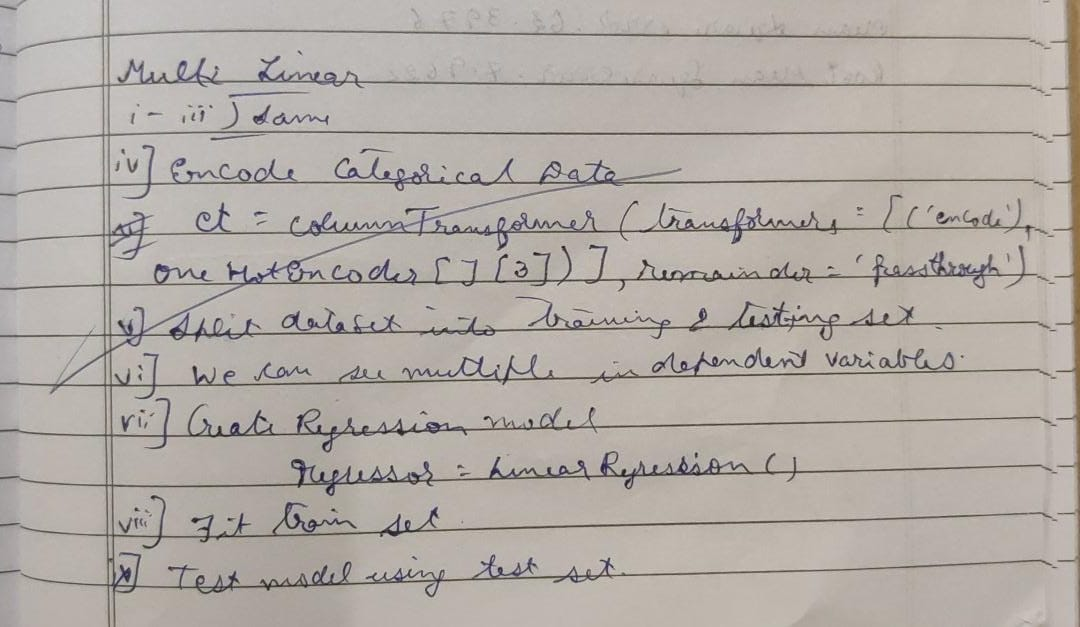 Multi Linear
i - iii) same
iv] Encode Categorical Data
ct = columnTransformer (transformers = [('encode'),
one HotEncoder [] [3])], remainder = 'passthrough')
v] Split dataset into training & testing set.
vi] We can see multiple independent variables.
vii] Create Regression model
regressor = Linear Regression ()
viii] Fit train set.
Test model using test set.